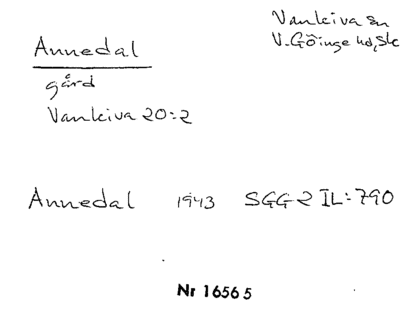 Vankiva sn
V. Göinge hd, Sk
Annedal
gård
Vankiva 20:2
Annedal 1943 SGG 2 IL:790
Nr 16565